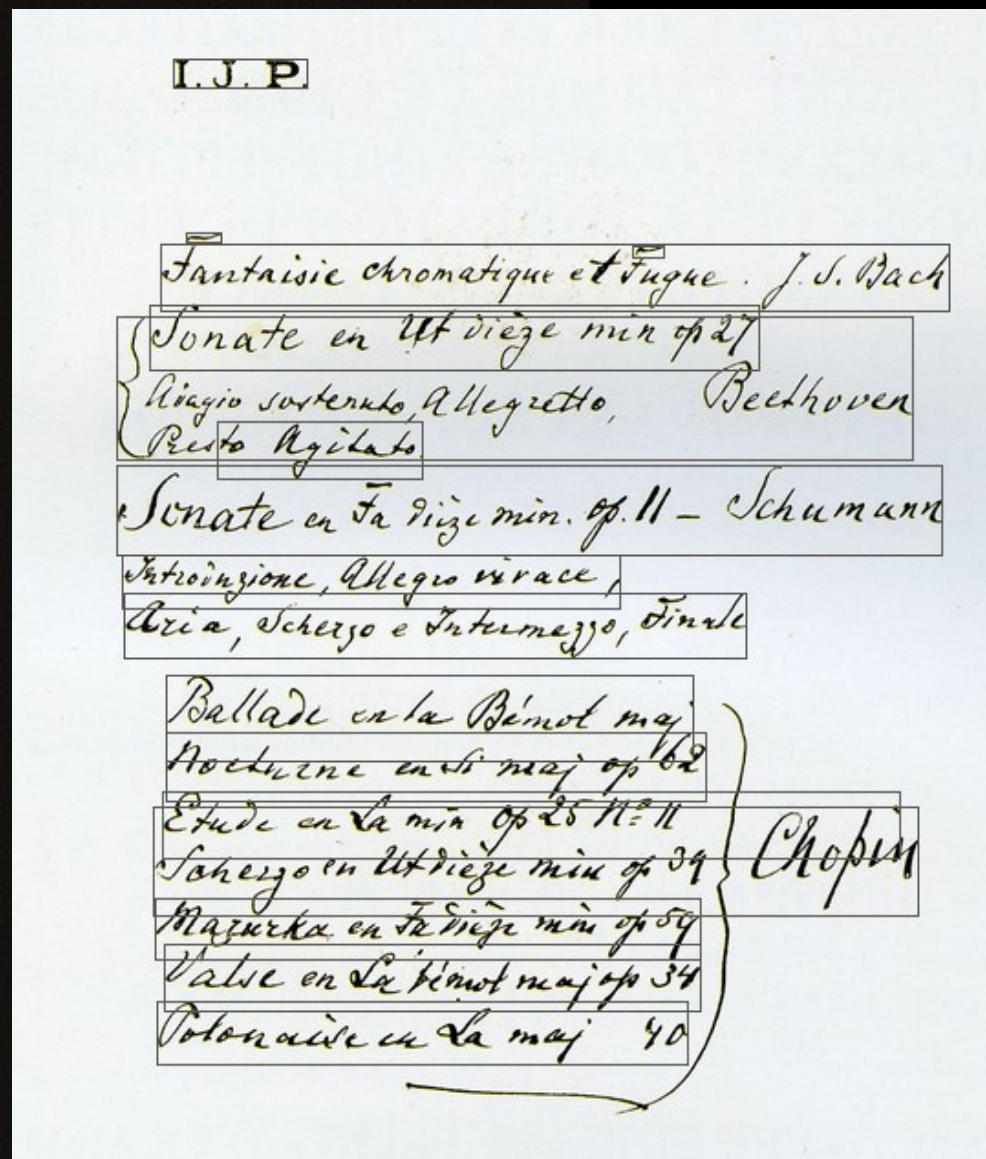 I. J. P.
Fantaisie chromatique et Fugue. J. S. Bach
Sonate en Ut dièze min op 27
Adagio sostenuto, Allegretto, Beethoven
Presto Agitato
Sonate en Fa dièze min. op. 11 – Schumann
Introduzione, Allegro vivace,
Aria, Scherzo e Intermezzo, Finale
Ballade en la Bémol maj
Nocturne en Si maj op 62
Etude en La min op 25 Nº 11
Scherzo en Ut dièze min op 39
Mazurka en Fa dièze min op 59
Valse en La bémol maj op 34
Polonaise en La maj 40
Chopin